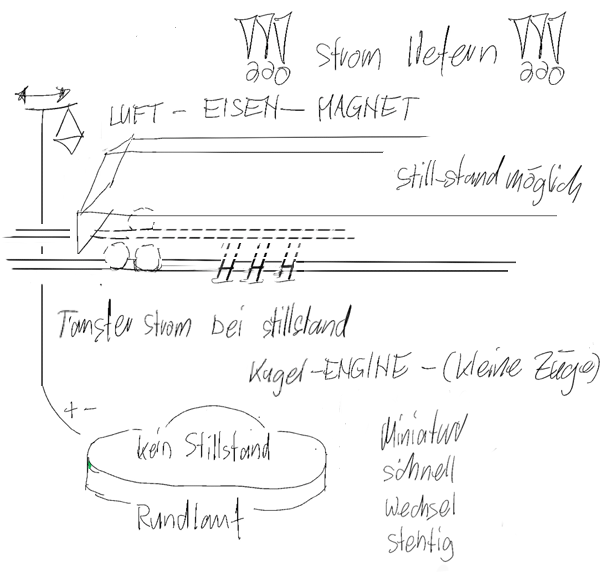 !!! Strom liefern !!!
LUFT - EISEN - MAGNET
Still-stand möglich
Tanster strom bei stillstand
Kugel-ENGINE - (kleine Züge)
+ -
kein Stillstand
Rundlauf
Miniatur
schnell
wechsel
stehtig